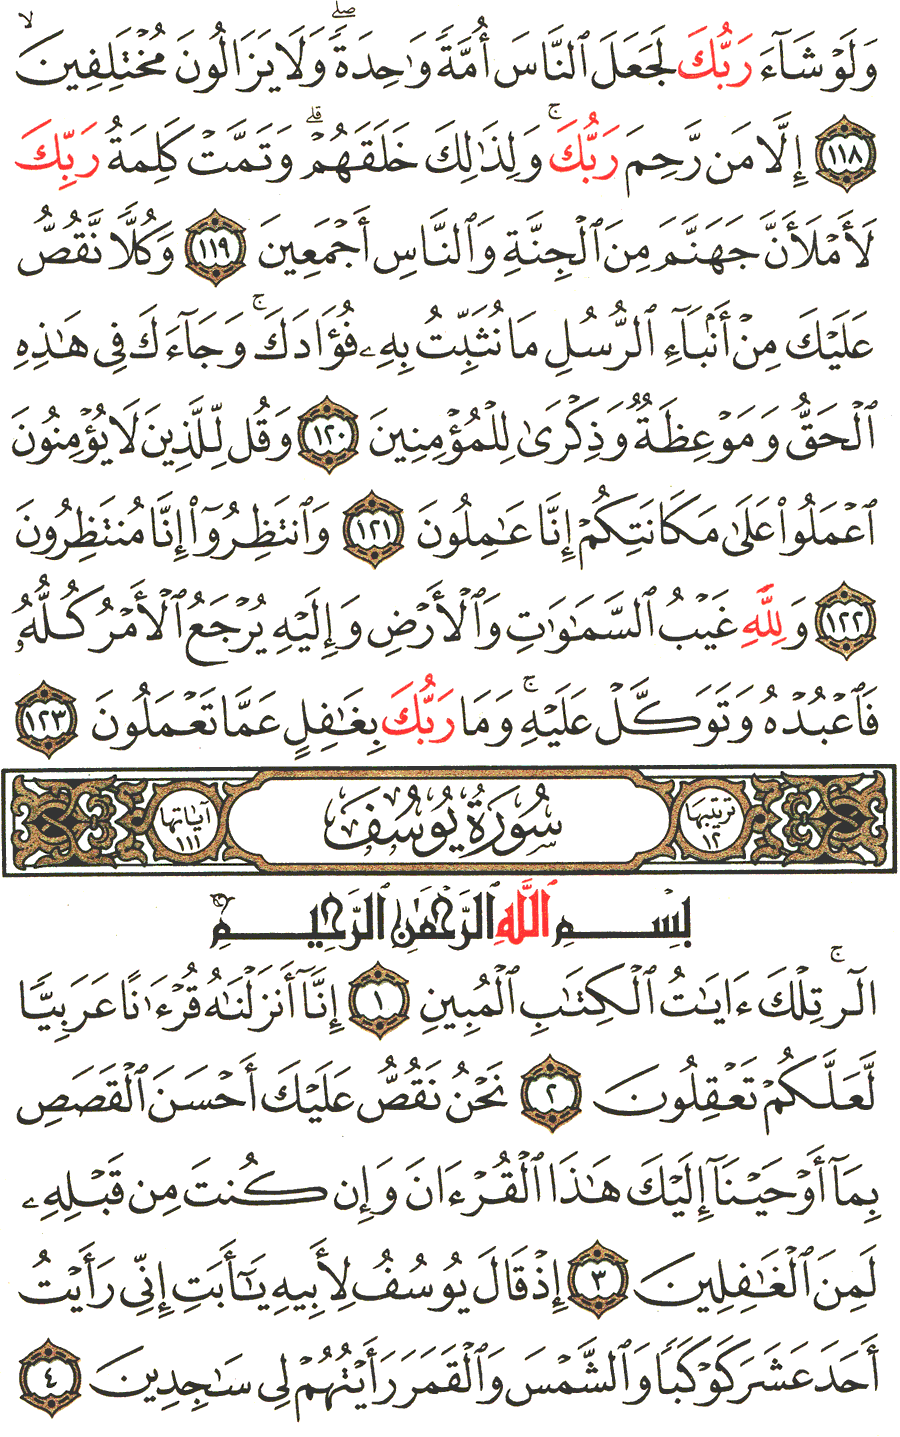 وَلَوْ شَآءَ رَبُّكَ لَجَعَلَ ٱلنَّاسَ أُمَّةً وَٰحِدَةً ۖ وَلَا يَزَالُونَ مُخْتَلِفِينَ ۙ
١١٨ إِلَّا مَن رَّحِمَ رَبُّكَ ۚ وَلِذَٰلِكَ خَلَقَهُمْ ۗ وَتَمَّتْ كَلِمَةُ رَبِّكَ
لَأَمْلَأَنَّ جَهَنَّمَ مِنَ ٱلْجِنَّةِ وَٱلنَّاسِ أَجْمَعِينَ ١١٩ وَكُلًّا نَّقُصُّ
عَلَيْكَ مِنْ أَنۢبَآءِ ٱلرُّسُلِ مَا نُثَبِّتُ بِهِۦ فُؤَادَكَ ۚ وَجَآءَكَ فِى هَٰذِهِ
ٱلْحَقُّ وَمَوْعِظَةٌ وَذِكْرَىٰ لِلْمُؤْمِنِينَ ١٢٠ وَقُل لِّلَّذِينَ لَا يُؤْمِنُونَ
ٱعْمَلُوا۟ عَلَىٰ مَكَانَتِكُمْ إِنَّا عَٰمِلُونَ ١٢١ وَٱنتَظِرُوٓا۟ إِنَّا مُنتَظِرُونَ
١٢٢ وَلِلَّهِ غَيْبُ ٱلسَّمَٰوَٰتِ وَٱلْأَرْضِ وَإِلَيْهِ يُرْجَعُ ٱلْأَمْرُ كُلُّهُۥ
فَٱعْبُدْهُ وَتَوَكَّلْ عَلَيْهِ ۚ وَمَا رَبُّكَ بِغَٰفِلٍ عَمَّا تَعْمَلُونَ ١٢٣
ترتيبها ١٢ سُورَةُ يُوسُفَ آياتها ١١١
بِسْمِ ٱللَّهِ ٱلرَّحْمَٰنِ ٱلرَّحِيمِ
الٓر ۚ تِلْكَ ءَايَٰتُ ٱلْكِتَٰبِ ٱلْمُبِينِ ١ إِنَّآ أَنزَلْنَٰهُ قُرْءَٰنًا عَرَبِيًّا
لَّعَلَّكُمْ تَعْقِلُونَ ٢ نَحْنُ نَقُصُّ عَلَيْكَ أَحْسَنَ ٱلْقَصَصِ
بِمَآ أَوْحَيْنَآ إِلَيْكَ هَٰذَا ٱلْقُرْءَانَ وَإِن كُنتَ مِن قَبْلِهِۦ
لَمِنَ ٱلْغَٰفِلِينَ ٣ إِذْ قَالَ يُوسُفُ لِأَبِيهِ يَٰٓأَبَتِ إِنِّى رَأَيْتُ
أَحَدَ عَشَرَ كَوْكَبًا وَٱلشَّمْسَ وَٱلْقَمَرَ رَأَيْتُهُمْ لِى سَٰجِدِينَ ٤